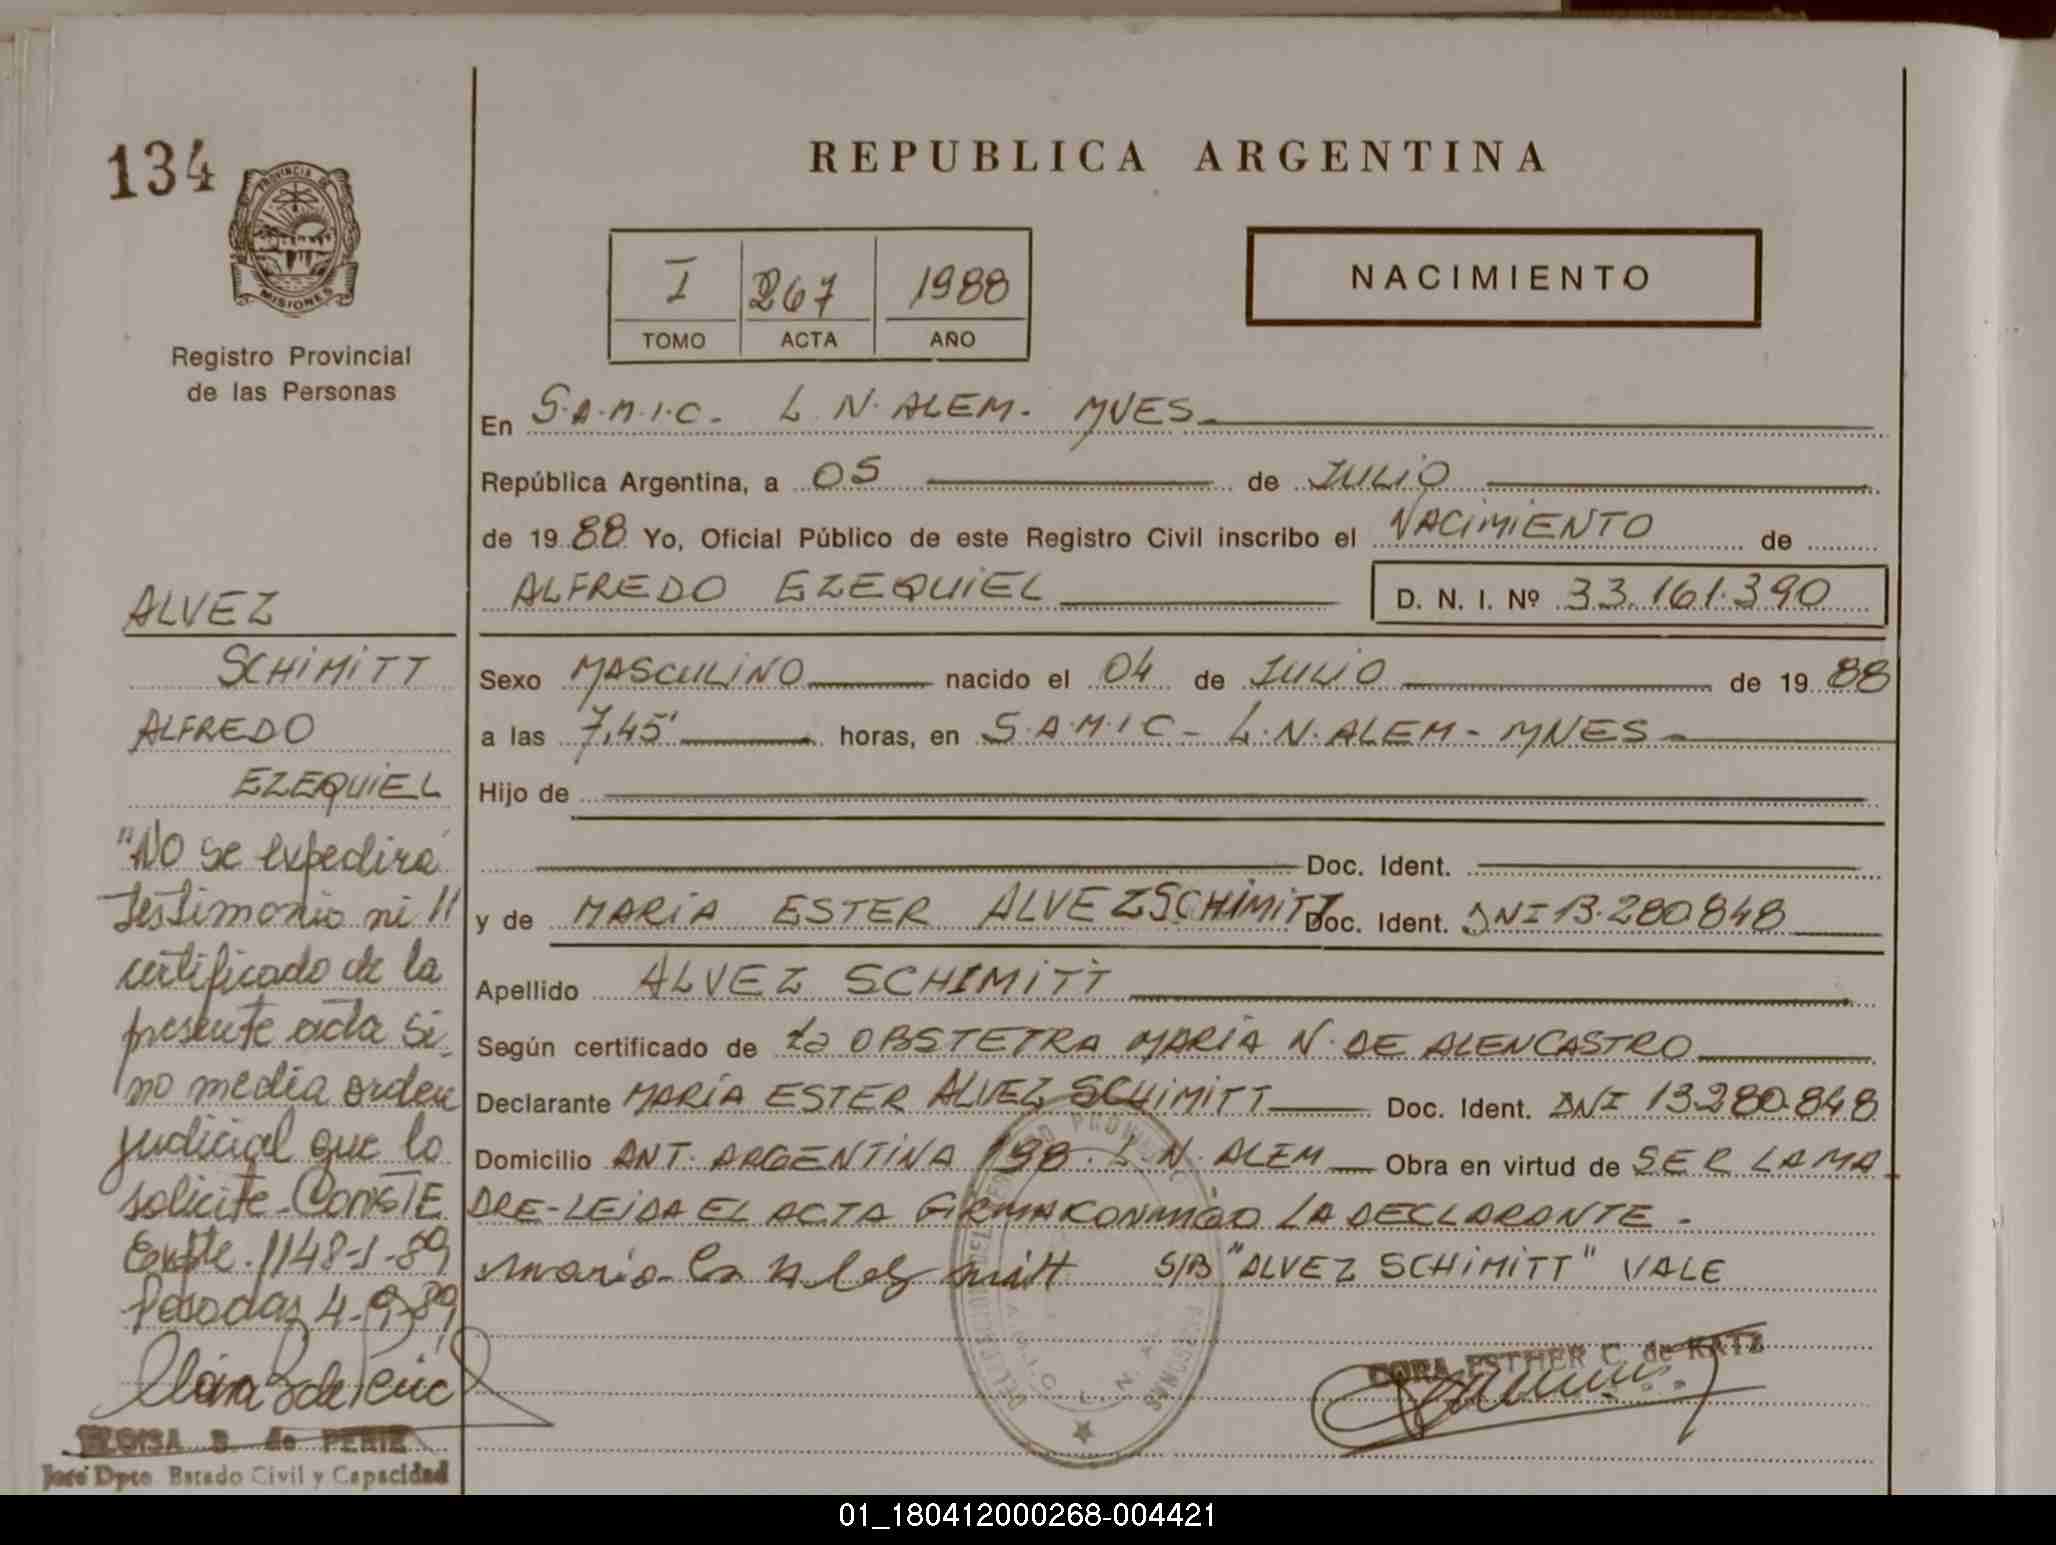 134
PROVINCIA DE
MISIONES
Registro Provincial
de las Personas
REPUBLICA ARGENTINA
I 267 1988
TOMO ACTA AÑO
NACIMIENTO
En S.A.M.I.C. L. N. ALEM. MNES
República Argentina, a 05 de JULIO
de 1988 Yo, Oficial Público de este Registro Civil inscribo el NACIMIENTO de
ALFREDO EZEQUIEL D. N. I. Nº 33.161.390
Sexo MASCULINO nacido el 04 de JULIO de 1988
a las 7,45' horas, en S.A.M.I.C - L.N. ALEM - MNES
Hijo de
Doc. Ident.
y de MARIA ESTER ALVEZ SCHIMITT Doc. Ident. DNI 13.280.848
Apellido ALVEZ SCHIMITT
Según certificado de la OBSTETRA MARIA N. DE ALENCASTRO
Declarante MARIA ESTER ALVEZ SCHIMITT Doc. Ident. DNI 13280.848
Domicilio ANT. ARGENTINA 198. L N. ALEM Obra en virtud de SER LA MA
DRE-LEIDA EL ACTA FIRMA CONMIGO LA DECLARANTE -
S/B "ALVEZ SCHIMITT" VALE
DORA ESTHER C. de KATZ
ALVEZ
SCHIMITT
ALFREDO
EZEQUIEL
"No se expedirá
testimonio ni
certificado de la
presente acta si
no media orden
judicial que lo
solicite. CONSTE
Expte. 1148-J-89
Posadas 4-9-89
ELOISA B de PERIE
Jefe Dpto. Estado Civil y Capacidad
01_180412000268-004421